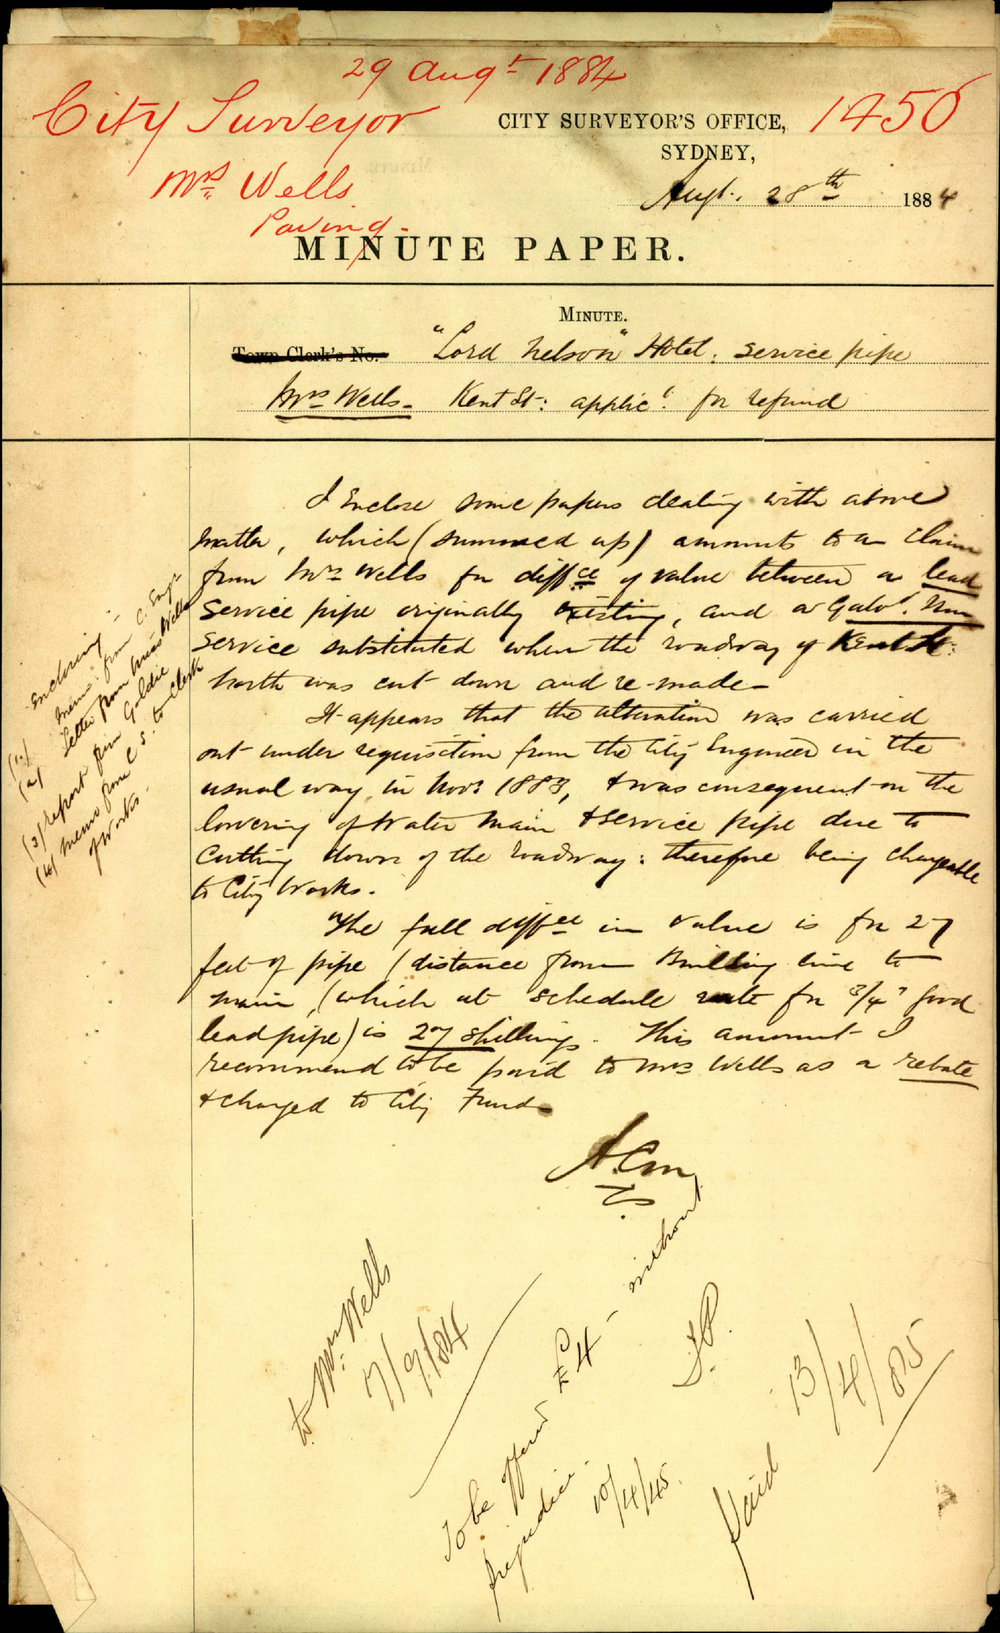 29 Augt 1884
City Surveyor
1450
Mrs Wells
Paving
CITY SURVEYOR'S OFFICE,
SYDNEY,
Augt. 28th 1884
MINUTE PAPER.
MINUTE.
Town Clerk's No. "Lord Nelson" Hotel. Service pipe
Mrs Wells. Kent St: applict. for refund
I Enclose some papers dealing with above
matter, which (summed up) amounts to a claim
from Mrs Wells for diffce of value between a lead
Service pipe originally existing, and a Galvd. Iron
Service substituted when the roadway of Kent St:
North was cut down and re-made
It appears that the alteration was carried
out under requisition from the City Engineer in the
usual way, in Novr 1883, & was consequent on the
lowering of Water Main & Service pipe due to
Cutting down of the roadway: therefore being chargeable
to City Works.
The full diffce in value is for 27
feet of pipe (distance from Building line to
main, (which at schedule rate for 3/4" good
lead pipe) is 27 shillings. This amount I
recommend to be paid to Mrs Wells as a rebate
& charged to City Funds
Enclosing
(1) Memo: from C. Engr
(2) Letter from Mrs Wells
(3) Report from Goldie
(4) Memo from C S. to Clerk
of Works.
to Mrs Wells
7/9/84
To be offered £4 - without
prejudice.
10/4/85.
Paid 13/4/85